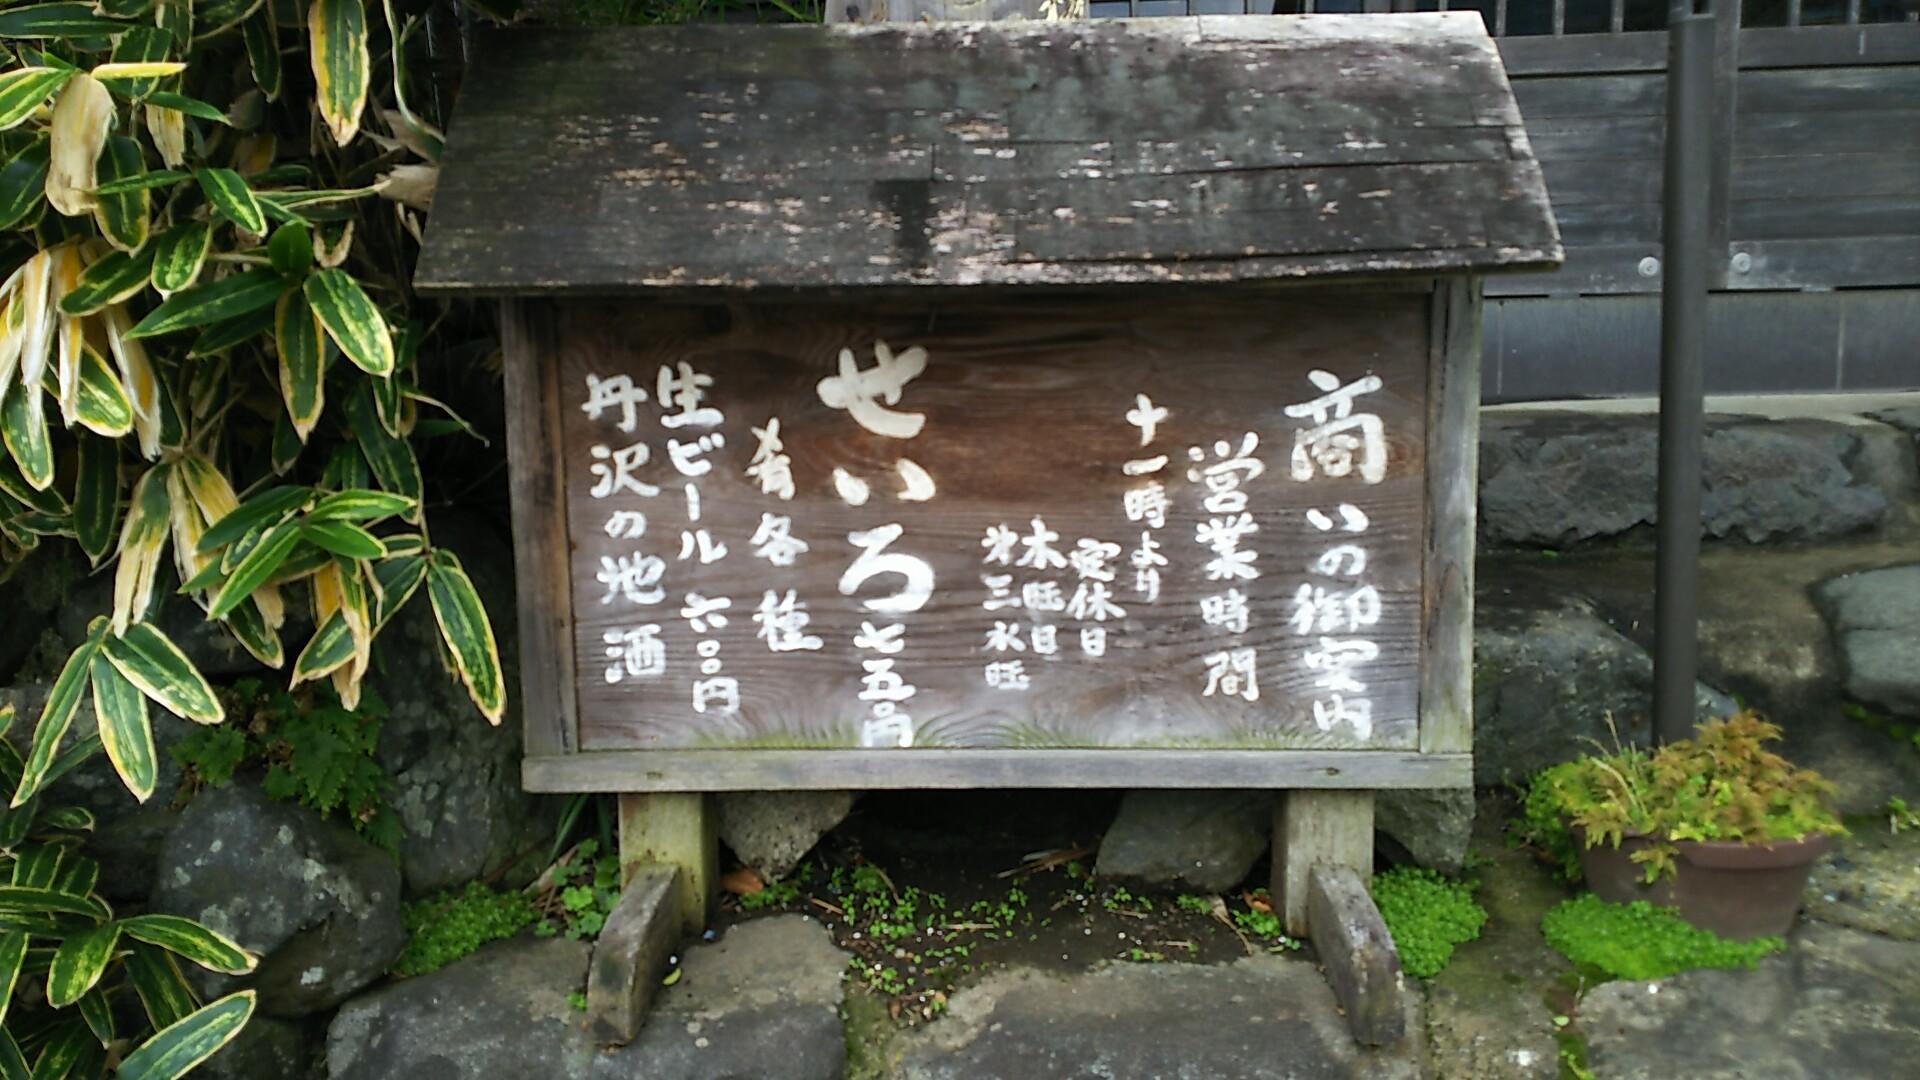 商いの御案内
営業時間
十一時より
定休日
木旺日
第三水旺
せいろ七五〇円
肴各種
生ビール六〇〇円
丹沢の地酒